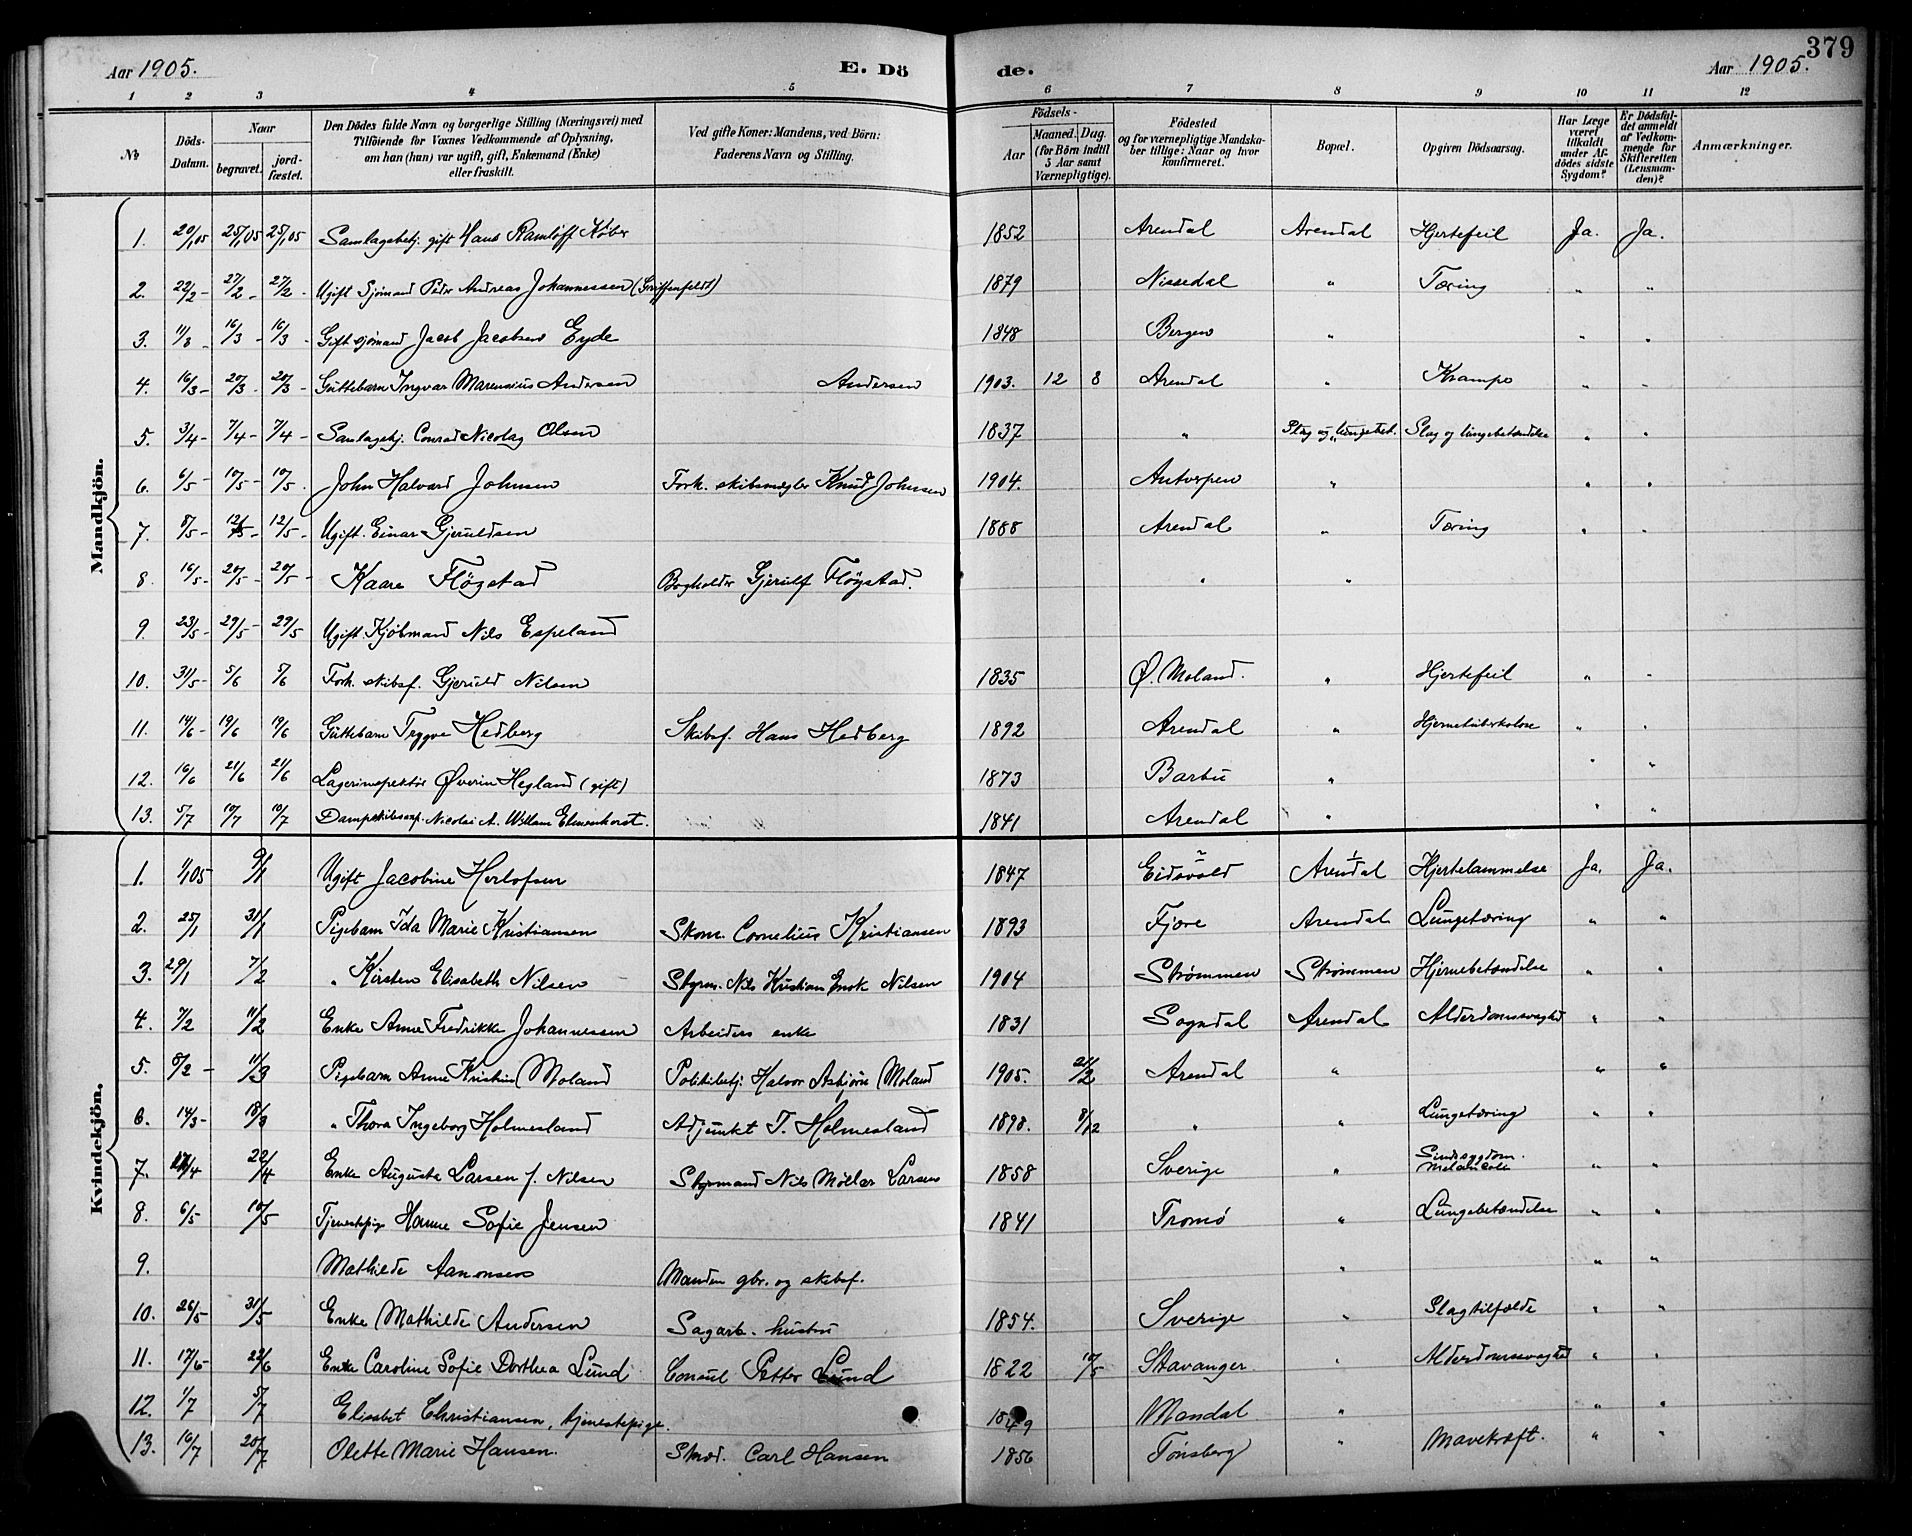 379
Aar 1905. E. Dö de. Aar 1905.
1 2 3 4 5 6 7 8 9 10 11 12
№ Döds-Datum. Naar begravet. jordfæstet. Den Dödes fulde Navn og borgerlige Stilling (Næringsvei) med Tilföiende for Voxnes Vedkommende af Oplysning, om han (hun) var ugift, gift, Enkemand (Enke) eller fraskilt. Ved gifte Koner: Mandens, ved Börn: Faderens Navn og Stilling. Födsels- Aar Maaned. Dag. (for Börn indtil 5 Aar samt Værnepligtige). Födested og for værnepligtige Mandskaber tillige: Naar og hvor konfirmeret. Bopæl. Opgiven Dödsaarsag. Har Læge været tilkaldt under Afdödes sidste Sygdom? Er Dödsfaldet anmeldt af Vedkommende for Skifteretten (Lensmanden)? Anmærkninger.
Mandkjön.
1. 20/1 05 25/1 05 25/1 05 Samlagsbetj. gift Hans Ramløff Køber 1852 Arendal Arendal Hjertefeil Ja. Ja.
2. 22/2 - 27/2 - 27/2 - Ugift Sjømand Peder Andreas Johannessen (Griffenfeldt) 1879 Nissedal " Tæring " "
3. 11/3 - 16/3 - 16/3 - Gift sjømand Jacob Jacobsen Eyde 1848 Bergen " " "
4. 16/3 - 20/3 - 20/3 - Guttebarn Ingvar Marensius Andersen Andersen 1903. 12 8 Arendal " Krampe " "
5. 3/4 - 7/4 - 7/4 - Samlagsbtj. Conrad Nicolay Olsen 1837 " Slag og lungebet. Slag og lungebetændelse " "
6. 6/5 - 10/5 - 10/5 - John Halvard Johnsen Forh. skibsmægler Knud Johnsen 1904. Antverpen " " "
7. 8/5 - 12/5 - 12/5 - Ugift. Einar Gjeruldsen 1888 Arendal " Tæring " "
8. 16/5 - 20/5 - 20/5 - Kaare Fløgstad Bogholder Gjerulf Fløgstad. " "
9. 23/5 - 29/5 - 29/5 Ugift. Kjøbmand Nils Espeland
10. 31/5 - 5/6 5/6 Forh. skibsf. Gjeruld Nilsen 1835 Ø. Moland. " Hjertefeil " "
11. 14/6 - 19/6 19/6 Guttebarn Trygve Hedberg Skibsf. Hans Hedberg 1892 Arendal " Hjernetuberkulose " "
12. 16/6 21/6 21/6 Lagerinspektør Øverin Hegland (gift) 1873 Barbu " " "
13. 5/7 10/7 10/7 Dampskibsexp. Nicolai A. Willam Elmenhorst. 1841 Arendal " " "
Kvindekjön.
1. 1/1 05 9/1 Ugift Jacobine Herlofsen 1847 Eidsvold Arendal Hjertelammelse Ja. Ja.
2. 25/1 31/1 Pigebarn Ida Marie Kristiansen Skom. Cornelius Kristiansen 1893 Fjære Arendal Lungetæring " "
3. 29/1 7/2 " Kirsten Elisabeth Nilsen Styrm. Nils Kristian Enok Nilsen 1904 Strømmen Strømmen Hjernebetændelse " "
4. 7/2 11/2 Enke Anne Fredrikke Johannessen Arbeiders enke 1831 Sogndal Arendal Alderdomssvaghed " "
5. 8/2 - 11/3 Pigebarn Anne Kristine Moland Politibetj. Halvor Asbjørn Moland 1905. 21/2 Arendal " " "
6. 14/3 - 18/3 " Thora Ingeborg Holmesland Adjunkt T. Holmesland 1898. 8/12 " " Lungetæring " "
7. 17/4 22/4 Enke Augusta Larsen f. Nilsen Styrmand Nils Møller Larsen 1858 Sverige " Sindssygdom. Melancoli " "
8. 6/5 10/5 Tjenestepige Hanne Sofie Jensen 1841 Tromø " Lungebetændelse " "
9. Mathilde Aanonsen Manden gbr. og skibsf. " " "
10. 26/5 31/5 Enke Mathilde Andersen Sagarb. hustru 1854. Sverige " Slagtilfælde " "
11. 17/6 - 22/6 Enke Caroline Sofie Dorthea Lund Consul Petter Lund 1822 10/5 Stavanger " Alderdomssvaghed " "
12. 1/7 5/7 Elisabet Christiansen, tjenestepige. 1849 Mandal " " "
13. 16/7 20/7 Olette Marie Hansen. Skræd. Carl Hansen 1856 Tønsberg " Mavekræft. " "